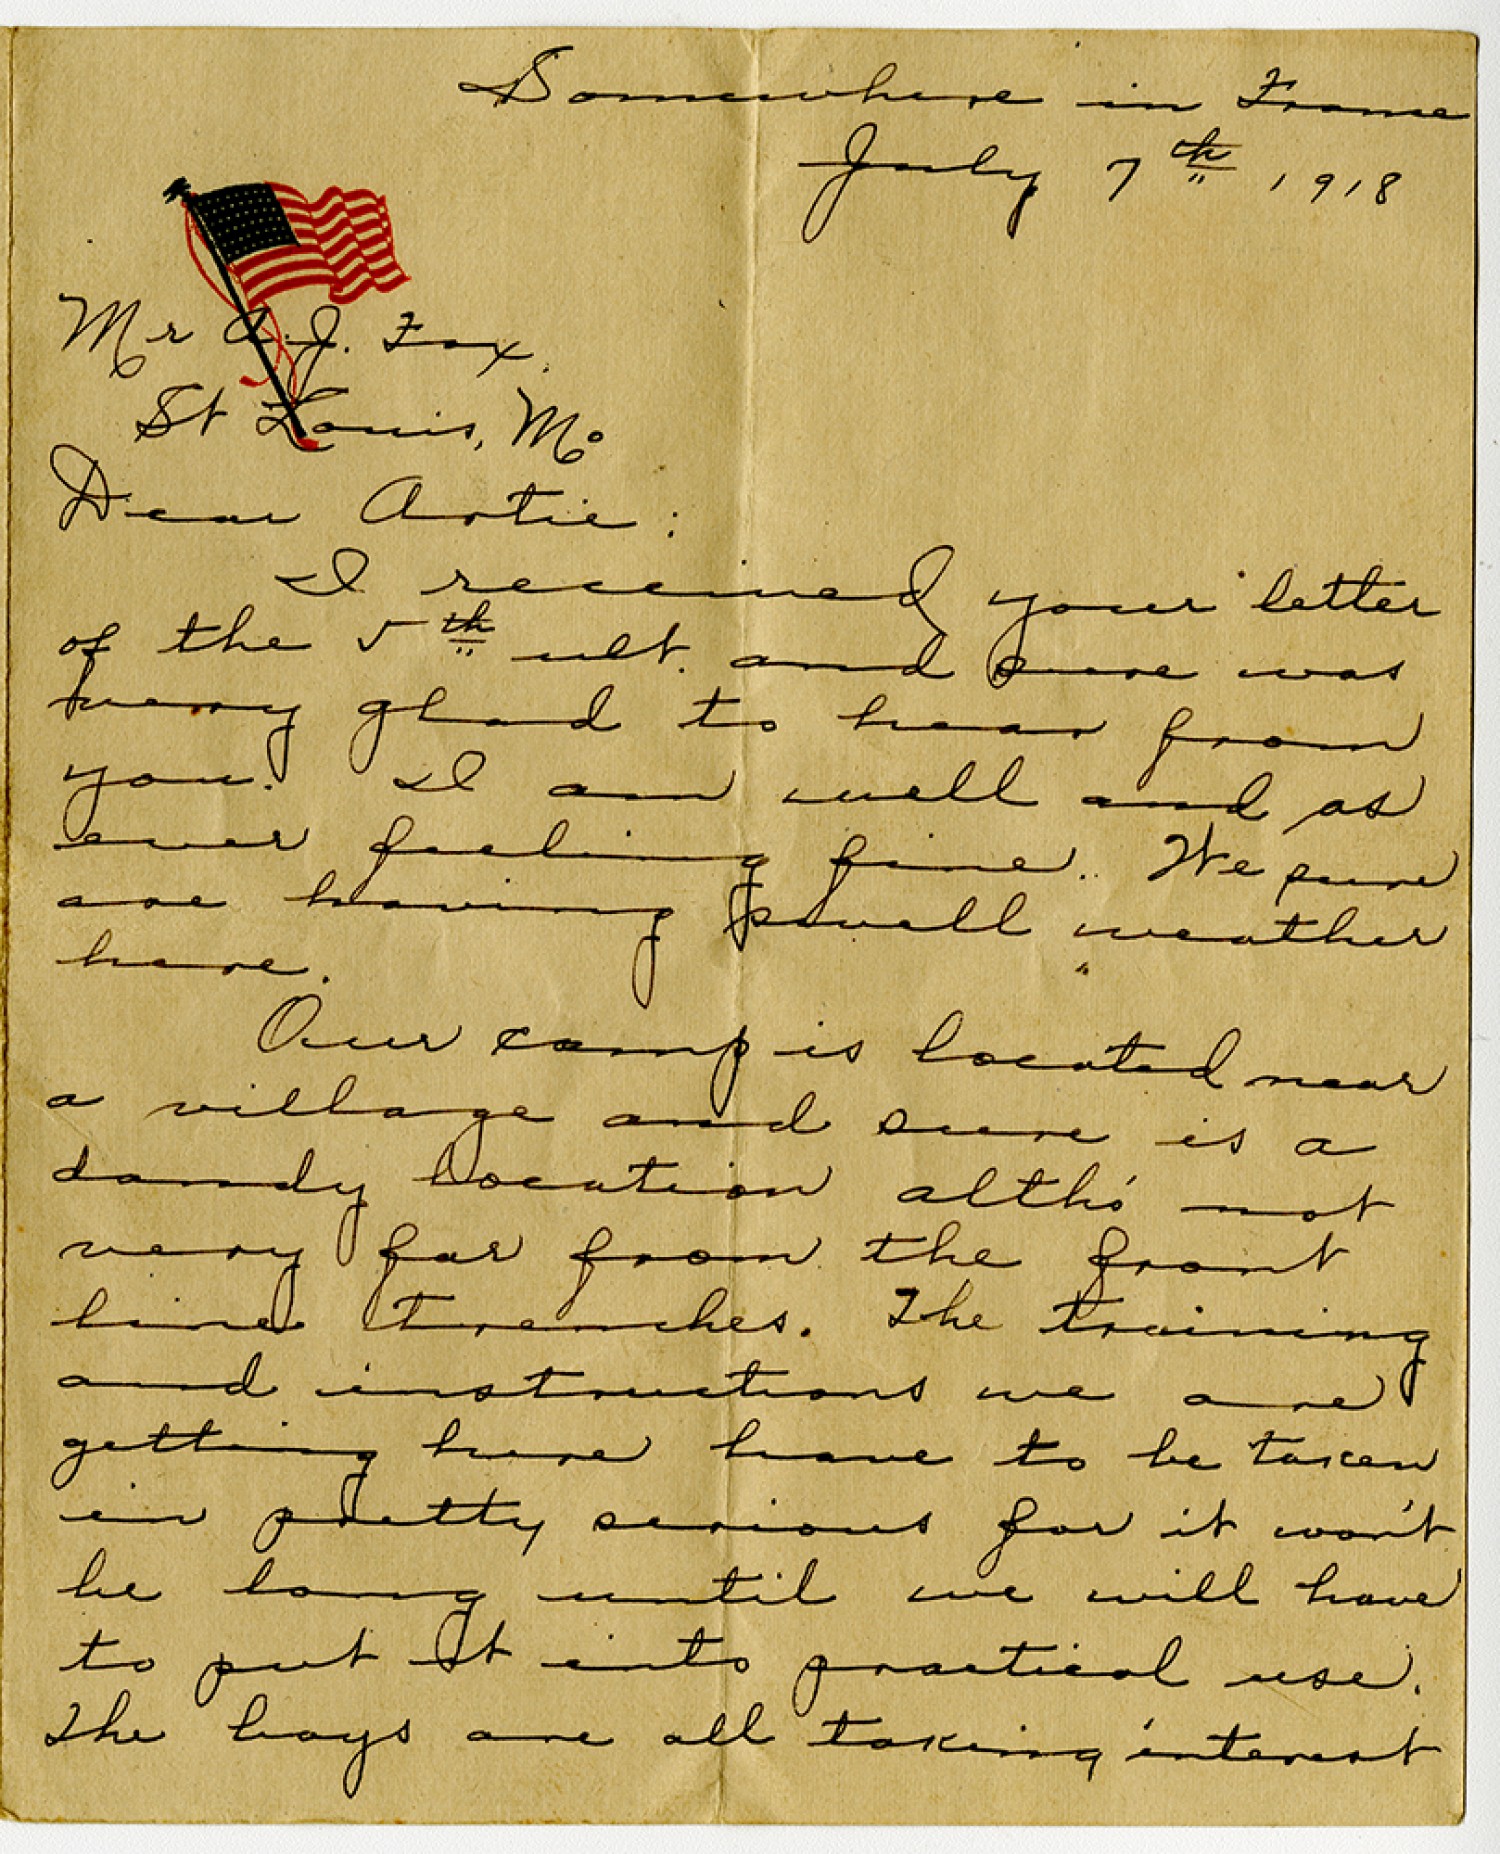 Somewhere in France
July 7th 1918
Mr A. J. Fox.
St Louis, Mo
Dear Artie:
I received your letter
of the 5th ult. and sure was
very glad to hear from
you. I am well and as
ever feeling fine. We sure
are having swell weather
here.
Our camp is located near
a village and sure is a
dandy location altho' not
very far from the front
line trenches. The training
and instructions we are
getting here have to be taken
in pretty serious for it won't
be long until we will have
to put it into practical use.
The boys are all taking interest